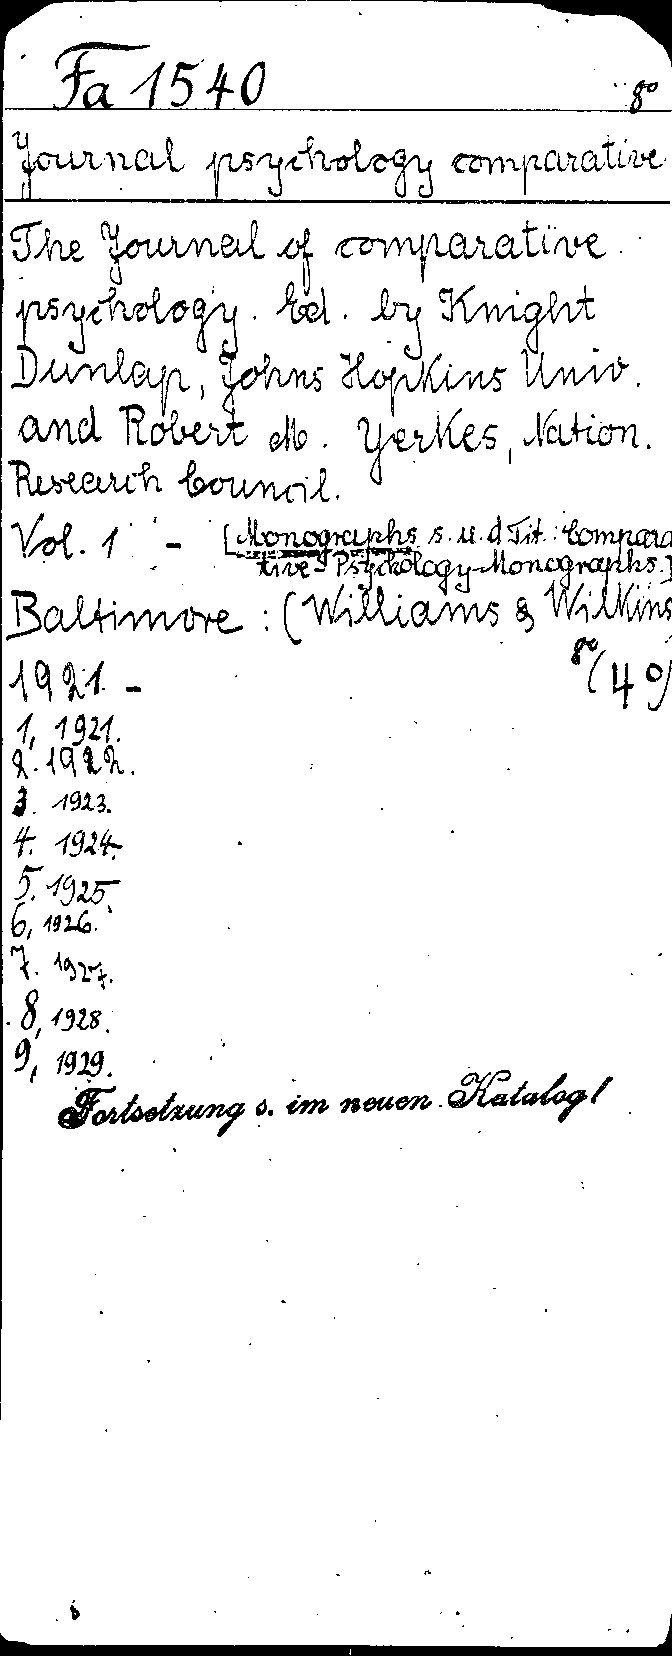 Fa 1540 8°
Journal psychology comparative
The Journal of comparative
psychology. Ed. by Knight
Dunlap, Johns Hopkins Univ.
and Robert M. Yerkes, Nation.
Research Council.
Vol. 1 - [Monographs s. u. d Tit.: Compara
tive-Psychology-Monographs.]
Baltimore: (Williams & Wilkins
1921 - 8°(4°)
1, 1921.
2. 1922.
3. 1923.
4. 1924.
5. 1925.
6, 1926.
7. 1927.
8, 1928.
9, 1929.
Fortsetzung s. im neuen Katalog!